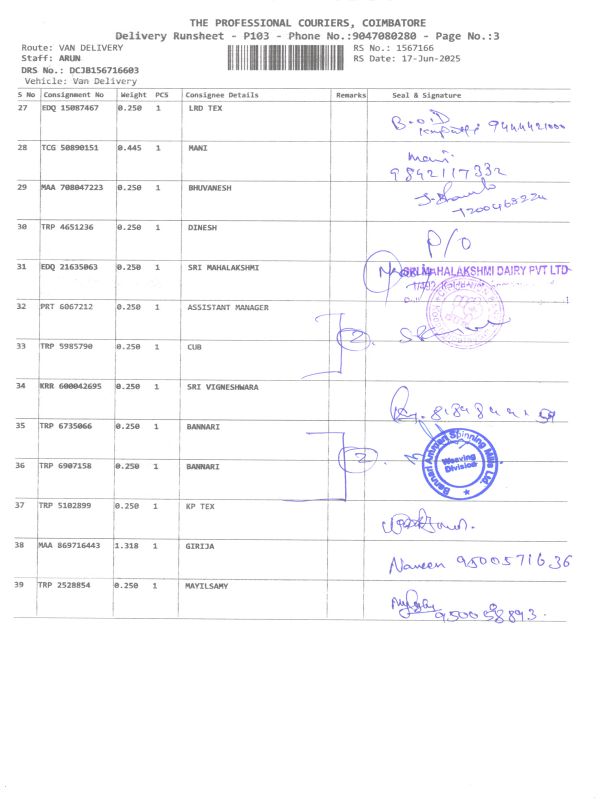 THE PROFESSIONAL COURIERS, COIMBATORE
Delivery Runsheet - P103 - Phone No.:9047080280 - Page No.:3
Route: VAN DELIVERY RS No.: 1567166
Staff: ARUN RS Date: 17-Jun-2025
DRS No.: DCJB156716603
Vehicle: Van Delivery
S No Consignment No Weight PCS Consignee Details Remarks Seal & Signature
27 EDQ 15087467 0.250 1 LRD TEX
B.O.D
9444421000
28 TCG 50890151 0.445 1 MANI
Mani
9842117332
29 MAA 708047223 0.250 1 BHUVANESH
30 TRP 4651236 0.250 1 DINESH
P/O
31 EDQ 21635063 0.250 1 SRI MAHALAKSHMI
SRI MAHALAKSHMI DAIRY PVT LTD
32 PRT 6067212 0.250 1 ASSISTANT MANAGER
2.
33 TRP 5985790 0.250 1 CUB
34 KRR 600042695 0.250 1 SRI VIGNESHWARA
35 TRP 6735066 0.250 1 BANNARI
2.
Bannari Amman Spinning Mills Ltd.
Weaving
Division
36 TRP 6907158 0.250 1 BANNARI
37 TRP 5102899 0.250 1 KP TEX
38 MAA 869716443 1.318 1 GIRIJA
Naveen 9500571636
39 TRP 2528854 0.250 1 MAYILSAMY